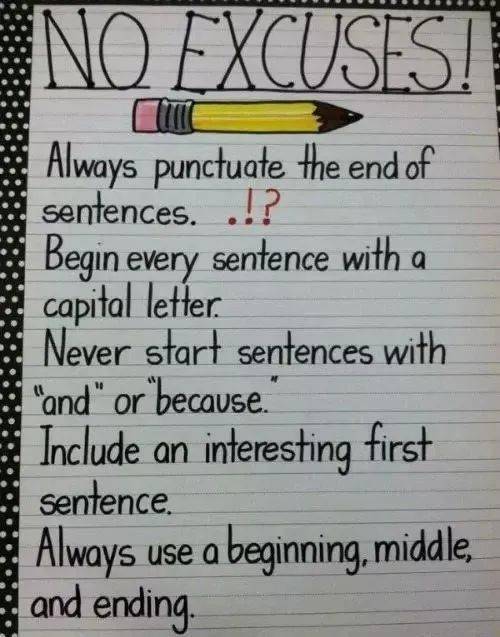 NO EXCUSES!
Always punctuate the end of
sentences. .!?
Begin every sentence with a
capital letter.
Never start sentences with
"and" or "because."
Include an interesting first
sentence.
Always use a beginning, middle,
and ending.